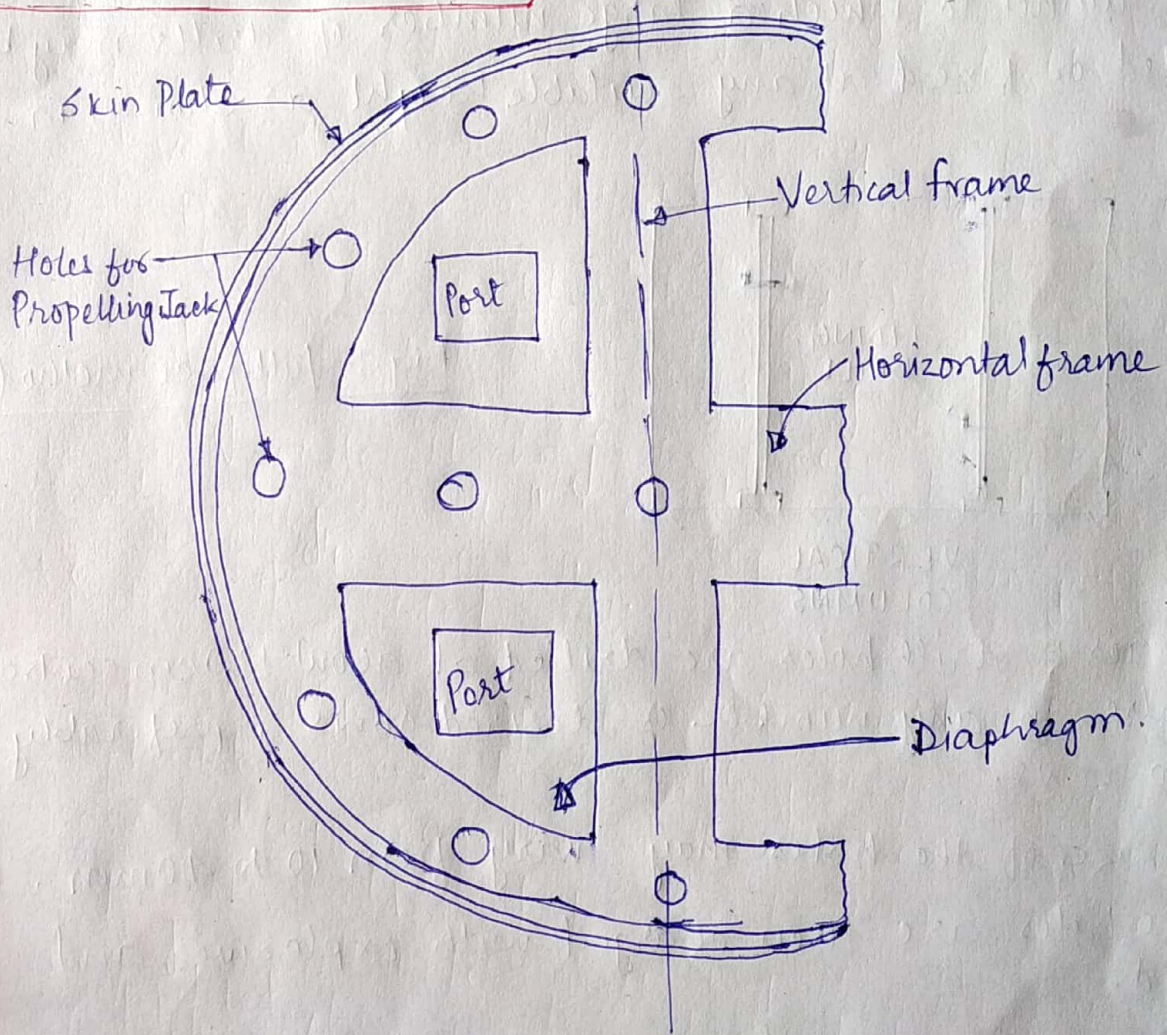 Skin Plate
Vertical frame
Holes for
Propelling Jack
Port
Horizontal frame
Port
Diaphragm.